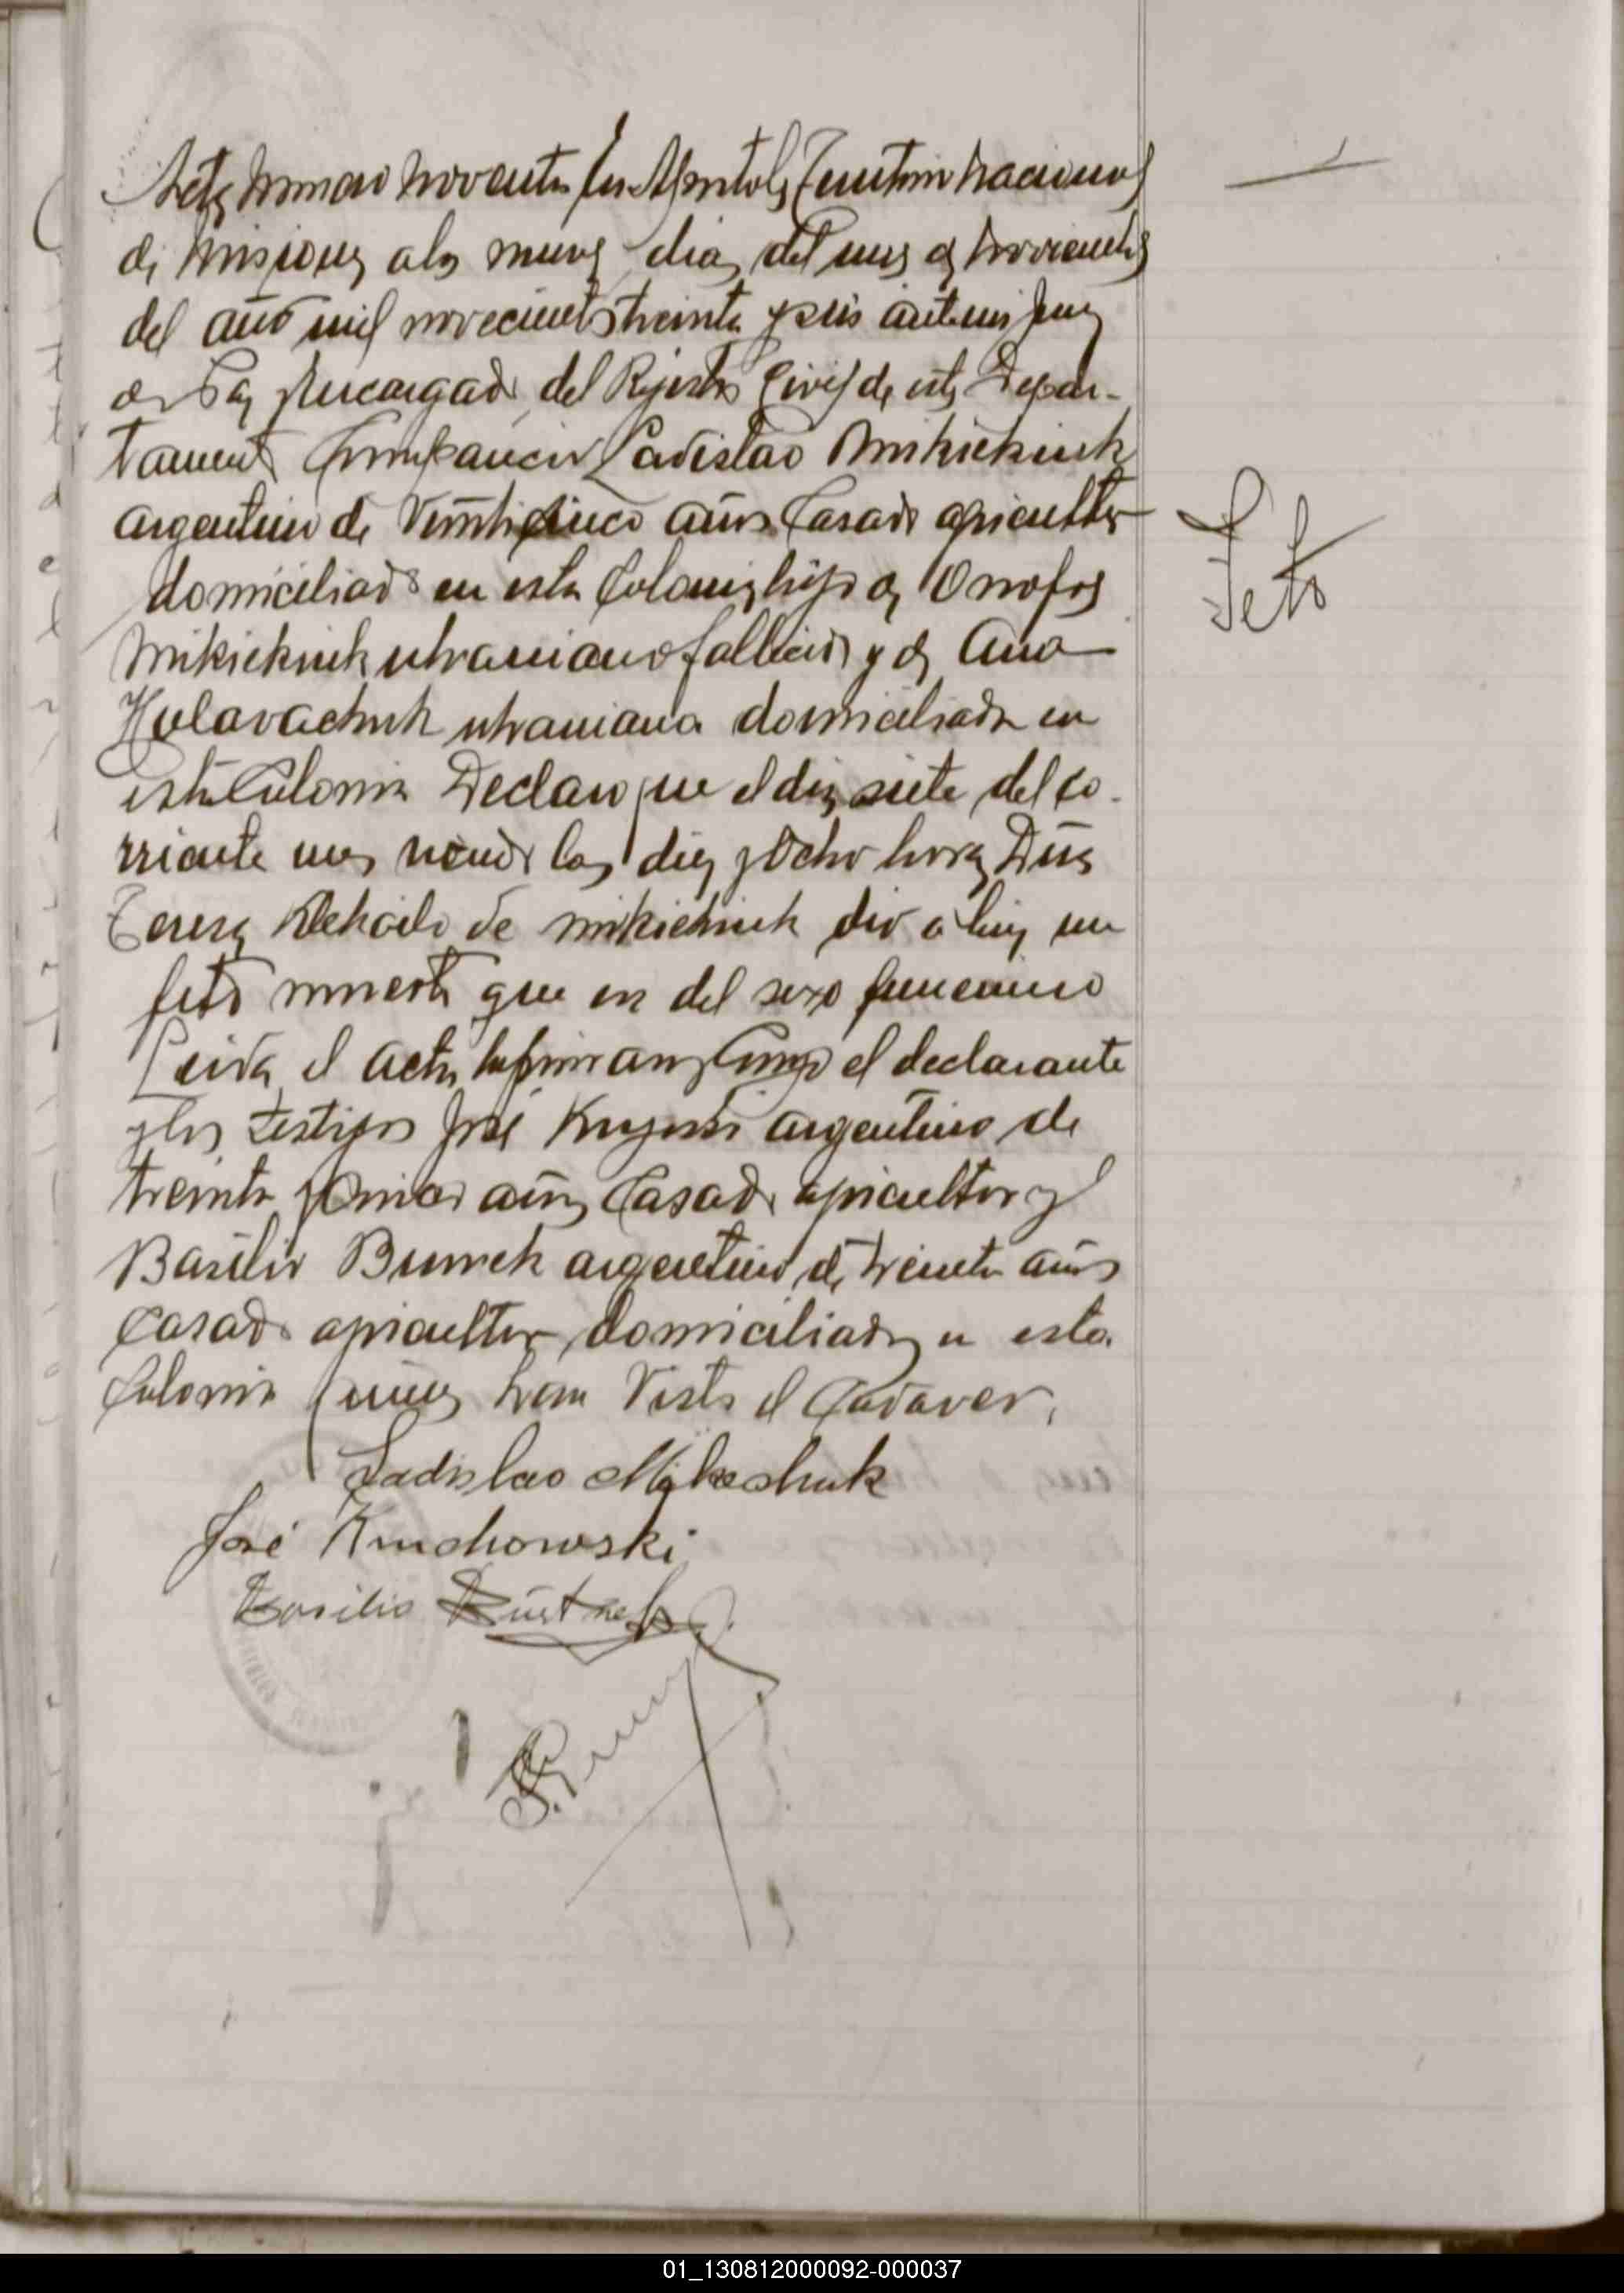 Acta número noventa En Apostoles Territorio Nacional
de Misiones a los nueve dias del mes de Noviembre
del año mil novecientos treinta y seis ante mi Juez
de Paz Encargado del Rejistro Civil de este Depar-
tamento Compareció Ladislao Mikiekiuk
argentino de Veinticinco años Casado agricultor
domiciliado en esta Colonia hijo de Onofre
Mikiekiuk ukraniano fallecido y de Ana
Holovachuk ukraniana domiciliada en
esta Colonia Declaro que el dia siete del co-
rriente mes siendo las diez y ocho horas Dña
Teresa de Mikiekiuk dio a luz un
feto muerto que es del sexo femenino
Leida el acta la firman conmigo el declarante
y los testigos José argentino de
treinta y cinco años Casado agricultor y
Basilio argentino de treinta años
Casado agricultor domiciliados en esta
Colonia quienes han Visto el Cadaver.
Ladislao Mikechuk
José Kruchowski
Basilio
Feto
01_130812000092-000037